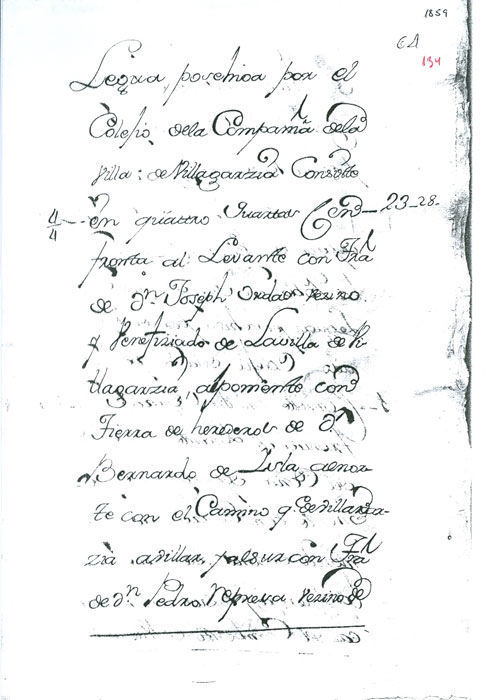 1859
64
134
Legua poschioa por el
Colesio dela Compamã dela
Villa: de Villagarzia Consste
4/4 en quattro quartas Cend 23-28-
fronta al Levante con Trã
de Dn Joseph Ordas Vezino
y Benefiziado de La villa de Vi
llagarzia, alponiente con
Tierra de herederos de Dn
Bernardo de Isla anor
te con el Camino q de villaga-
zia avillar, yalsur con Trã
de Dn Pedro Vezino de